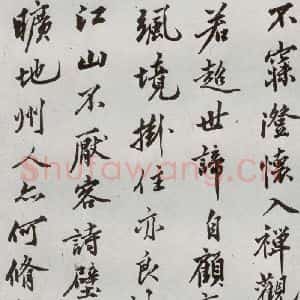 不寐澄懷入禪觀
若超世諦自顧
颯境掛住亦良
江山不厭客詩壁
曠地州人亦何脩
Shufawang.Cn